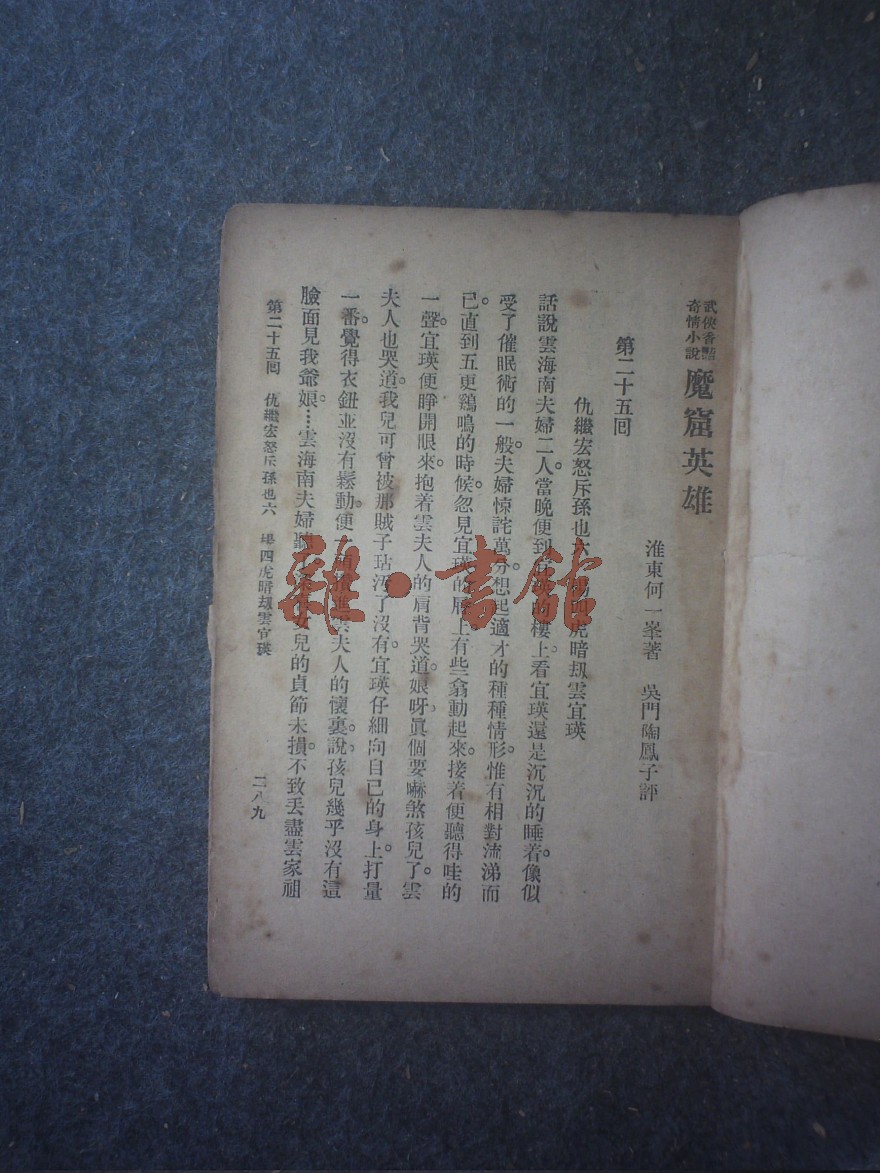 武俠香豔
奇情小說
魔窟英雄
淮東何一峯著　吳門陶鳳子評
第二十五回
仇繼宏怒斥孫也六　楊四虎暗刼雲宜瑛
話說雲海南夫婦二人。當晚便到宜瑛的樓上。看宜瑛還是沉沉的睡着。像似
受了催眠術的一般。夫婦惊詫萬分。想起適才的種種情形。惟有相對流涕而
已。直到五更鷄鳴的時候。忽見宜瑛的唇上有些翕動起來。接着便聽得哇的
一聲。宜瑛便睜開眼來。抱着雲夫人的肩背哭道。娘呀。眞個要嚇煞孩兒了。雲
夫人也哭道。我兒可曾被那賊子玷汚了沒有。宜瑛仔細向自己的身上。打量
一番。覺得衣鈕並沒有鬆動。便一頭攢進雲夫人的懷裏。說。孩兒幾乎沒有這
臉面見我爺娘。……雲海南夫婦聽 女兒的貞節未損。不致丢盡雲家祖
第二十五回　仇繼宏怒斥孫也六　楊四虎暗刼雲宜瑛
二八九
雜·書館